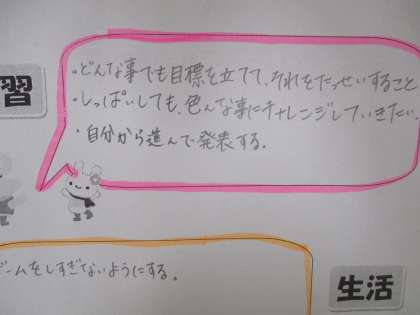 習
・どんな事でも目標を立てて、それをたっせいすること
・しっぱいしても、色んな事にチャレンジしていきたい。
・自分から進んで発表する。
ゲームをしすぎないようにする。
生活